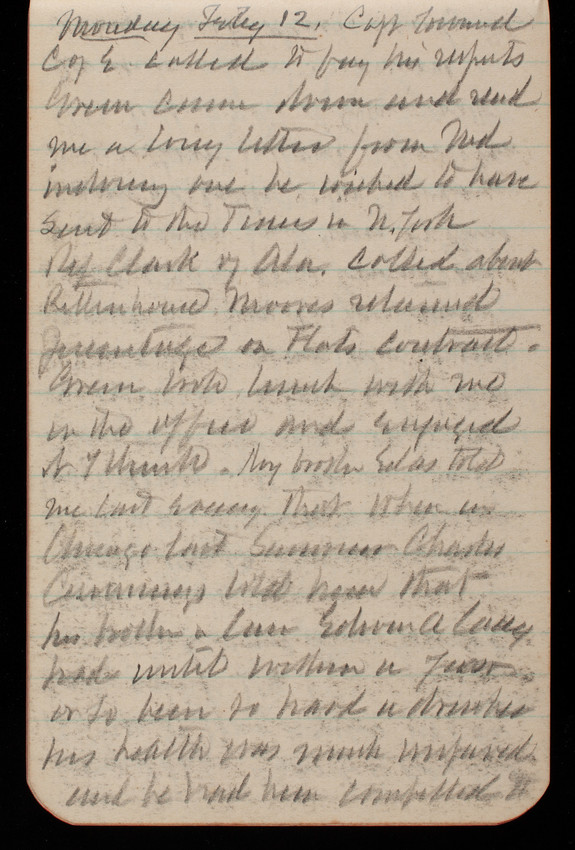 Monday Feby 12. Capt Townsend
Coy E called to pay his respects
Green came down and read
me a long letter from Ned
inclosing one he wished to have
sent to the Times in N. York
Rep Clark of Ala. called about
Rittenhouse Moores retained
percentage on Flats contract.
Green took lunch with me
in the office and enjoyed
it I think. My brother Silas told
me last evening that when in
Chicago last Summer Charles
told him that
his brother in law Edward Casey
had until within a year
or so been so hard a drinker
his health was much impaired
and he had been compelled to